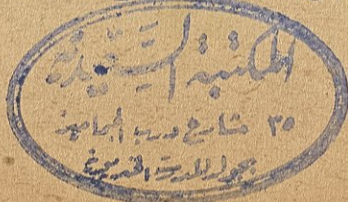 المكتبة السعيدية
٣٥ شارع درب الجماميز
بجوار المدرسة الخديوية